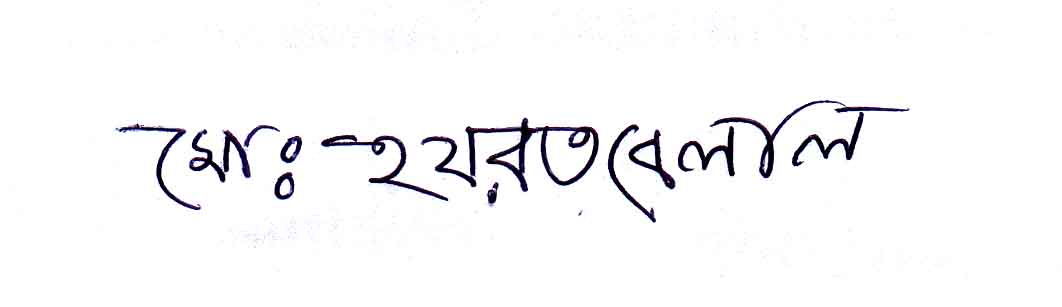 মোঃ হযরত বেলাল